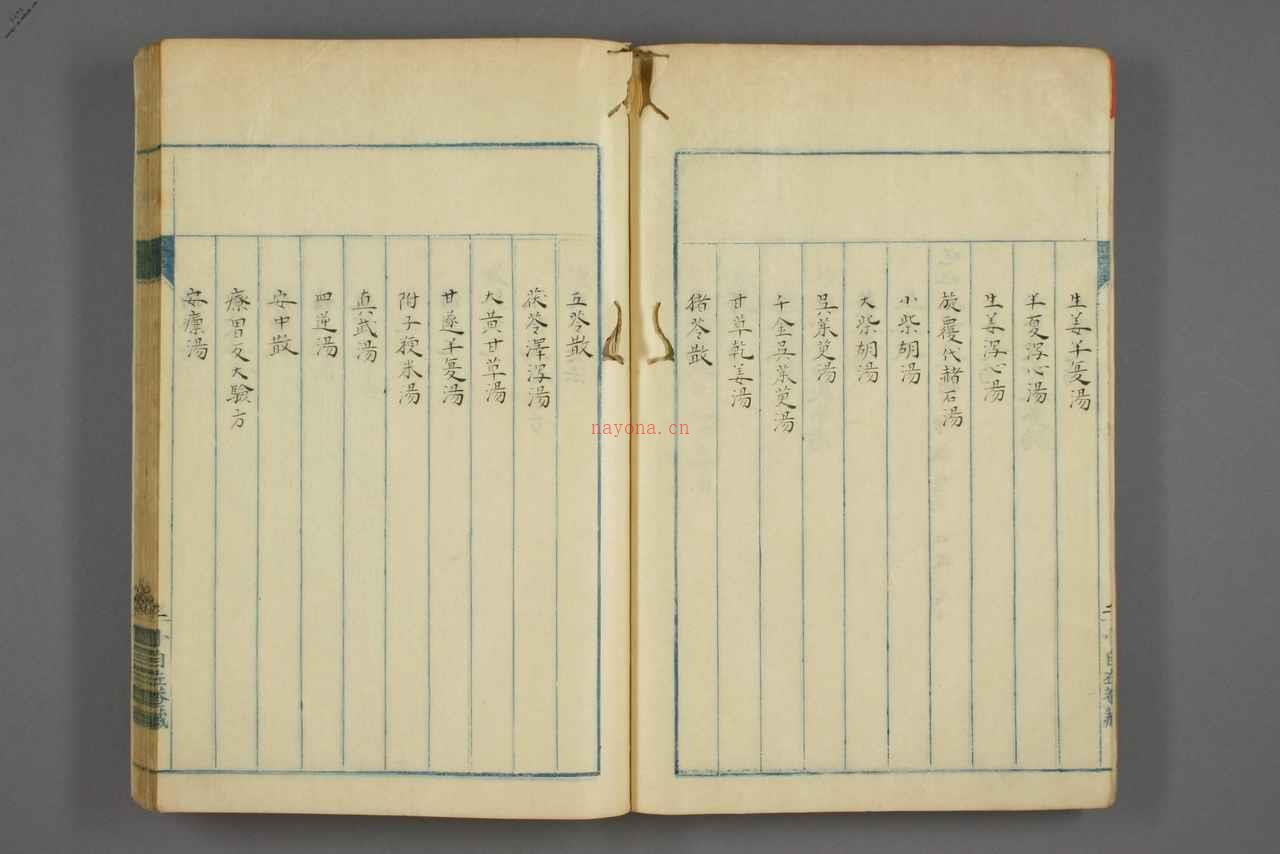 生姜半夏湯
半夏瀉心湯
生姜瀉心湯
旋覆代赭石湯
小柴胡湯
大柴胡湯
吳茱萸湯
千金吳茱萸湯
甘草乾姜湯
猪苓散
五苓散
茯苓澤瀉湯
大黃甘草湯
甘遂半夏湯
附子粳米湯
真武湯
四逆湯
安中散
療胃反大驗方
安瘰湯
nayona.cn